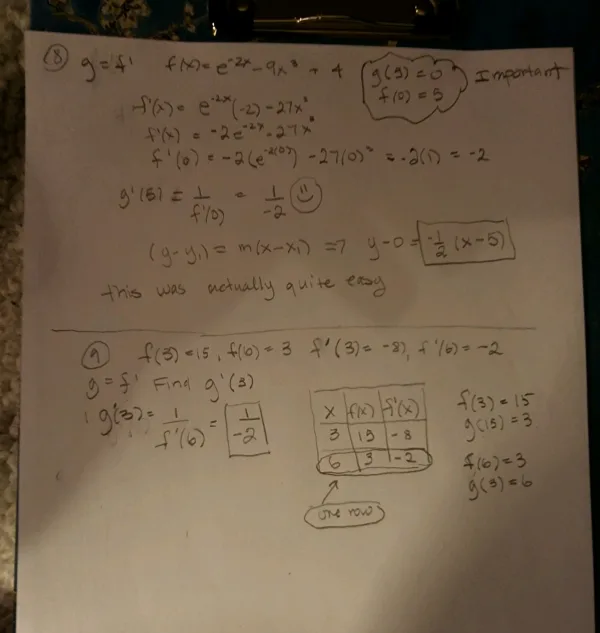 ⑧ g = f⁻¹ f(x) = e^-2x - 9x³ + 4
g(5) = 0
f(0) = 5
Important
f'(x) = e^-2x (-2) - 27x²
f'(x) = -2e^-2x - 27x²
f'(0) = -2(e^-2(0)) - 27(0)² = -2(1) = -2
g'(5) = 1/f'(0) = 1/-2 ☺
(y-y₁) = m(x-x₁) => y-0 = -1/2 (x-5)
this was actually quite easy
⑨ f(3) = 15, f(6) = 3 f'(3) = -8, f'(6) = -2
g = f⁻¹ Find g'(3)
g'(3) = 1/f'(6) = 1/-2
x f(x) f'(x)
3 15 -8
6 3 -2
one row
f(3) = 15
g(15) = 3
f(6) = 3
g(3) = 6